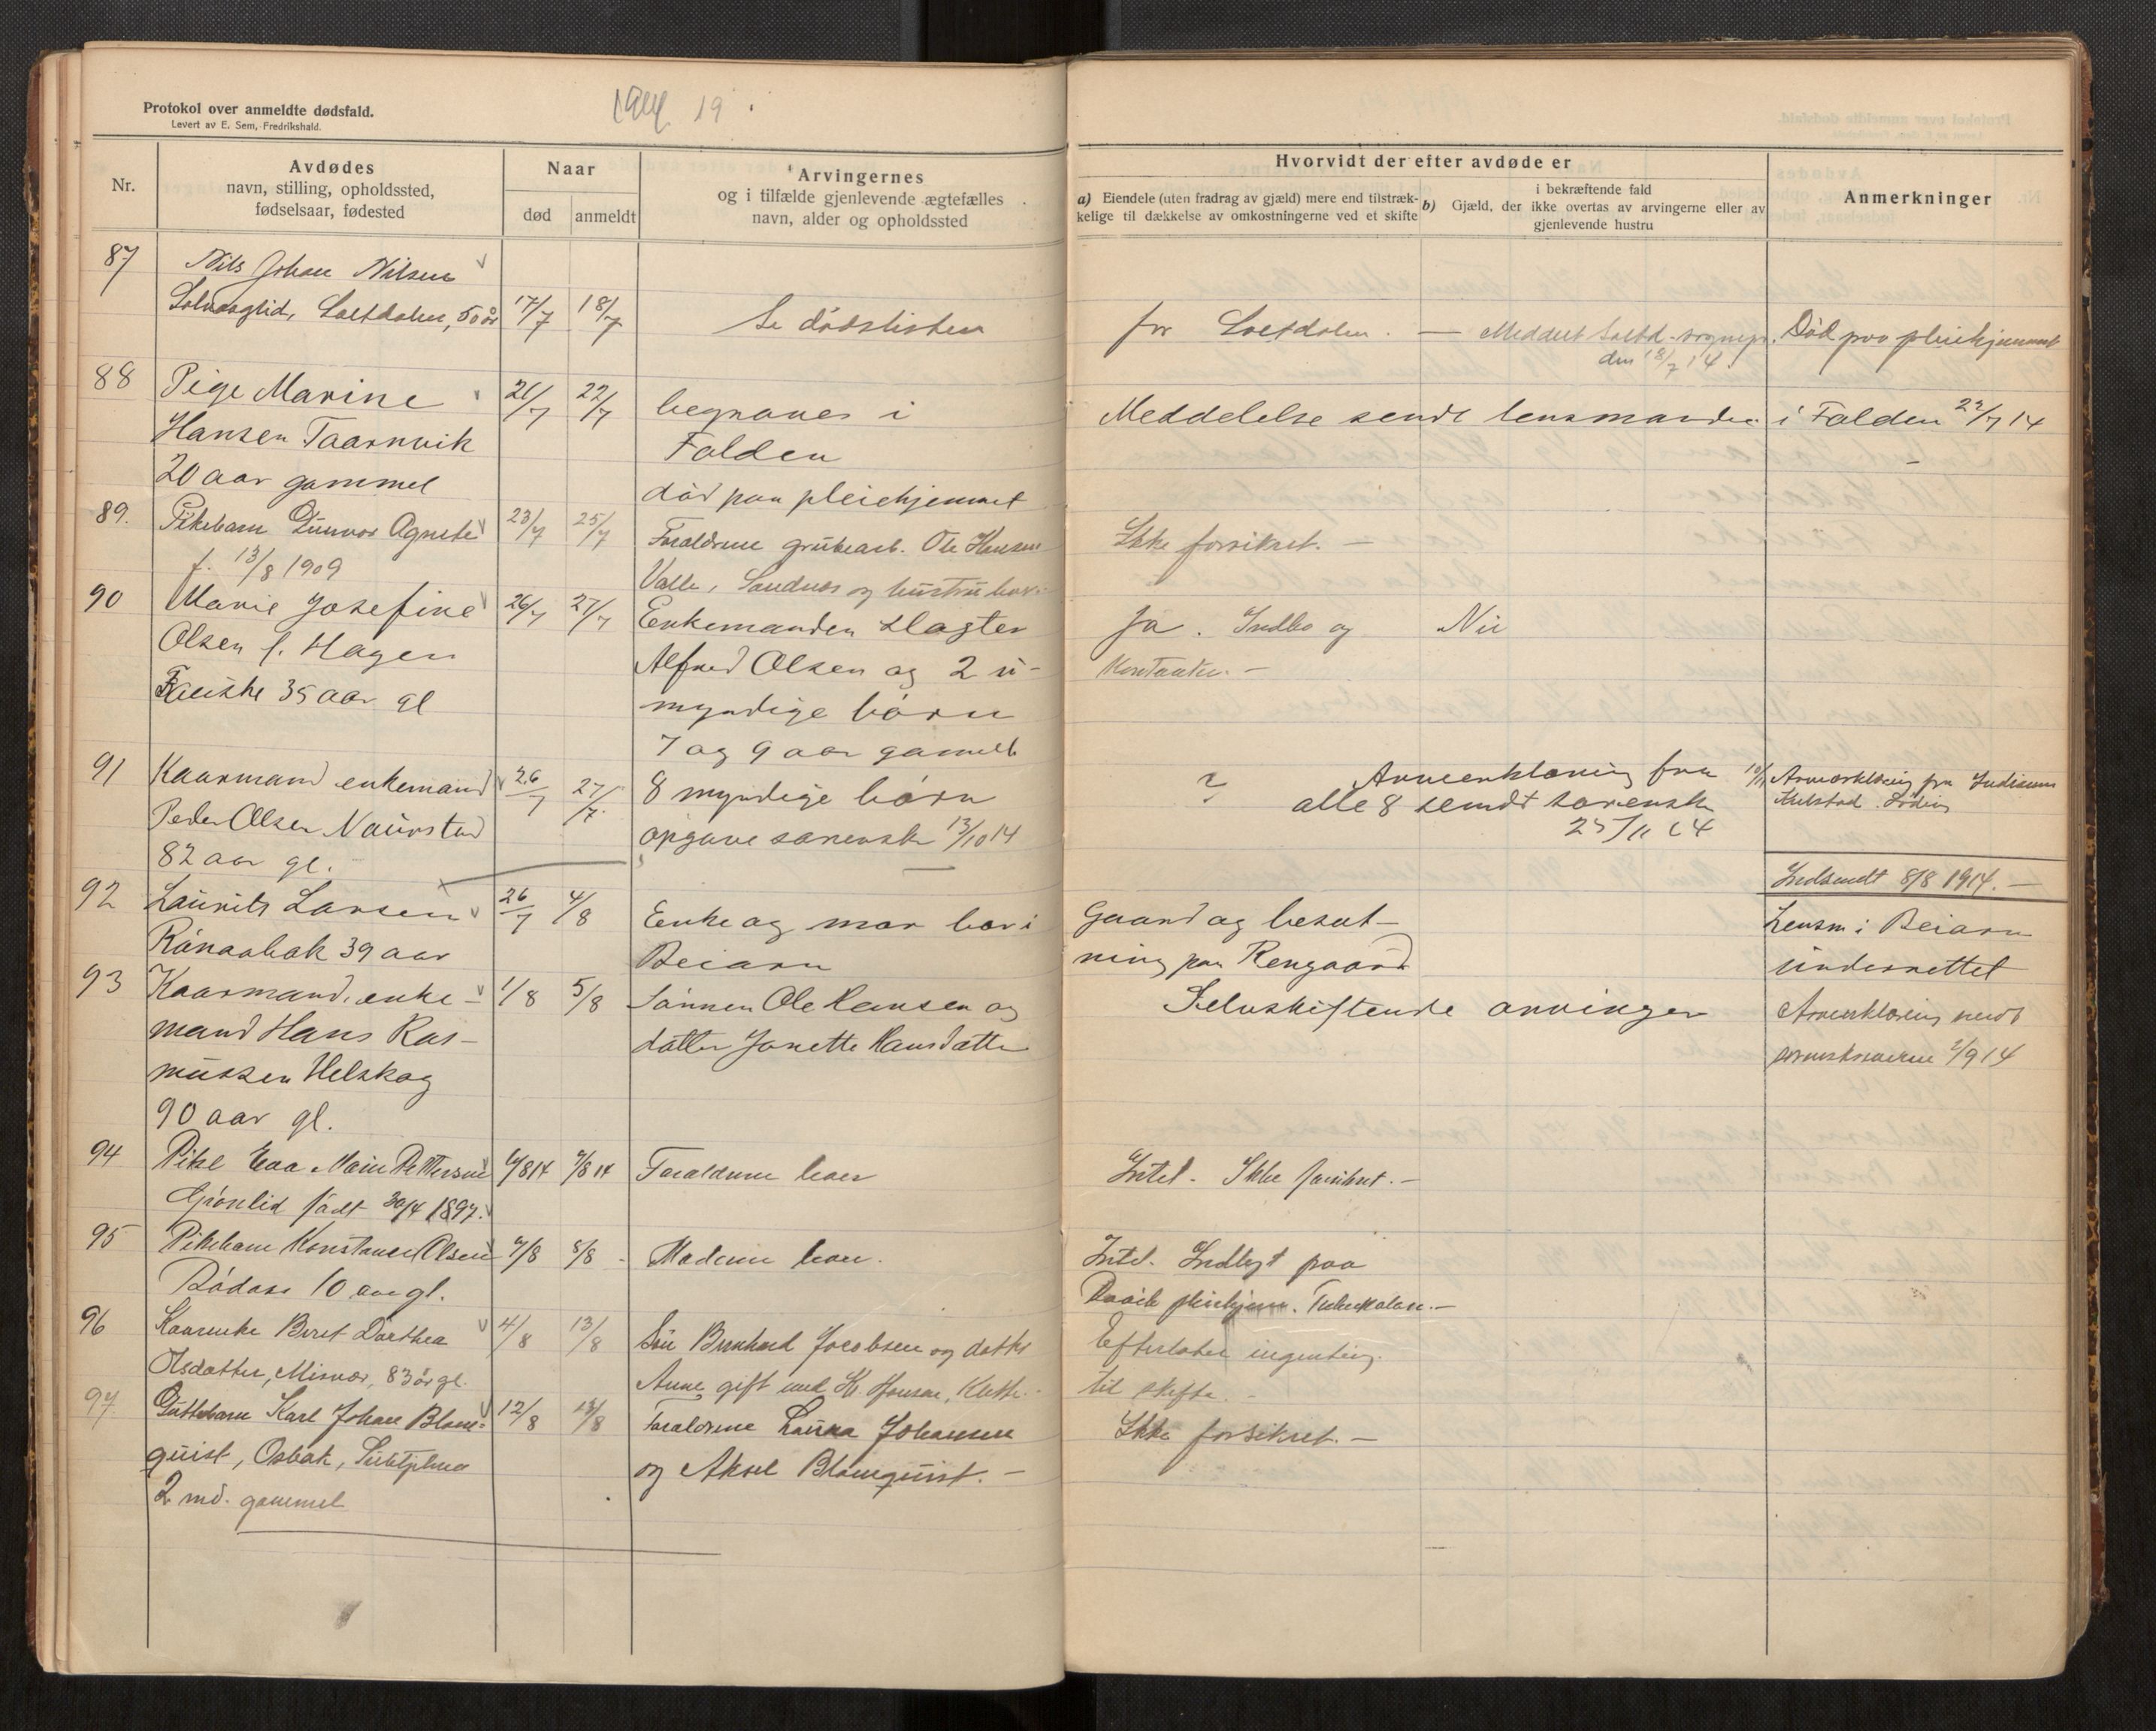 Protokol over anmeldte dødsfald.
Levert av E. Sem, Fredrikshald.
19
Nr.
Avdødes
navn, stilling, opholdssted,
fødselsaar, fødested
Naar
død
anmeldt
Arvingernes
og i tilfælde gjenlevende ægtefælles
navn, alder og opholdssted
Hvorvidt der efter avdøde er
a) Eiendele (uten fradrag av gjæld) mere end tilstræk-
kelige til dækkelse av omkostningerne ved et skifte
i bekræftende fald
b) Gjæld, der ikke overtas av arvingerne eller av
gjenlevende hustru
Anmerkninger
87
Nils Johan Nilsen
Saltdalen, 50 år 17/7 18/7
Se dødslisten
for Saltdalen. —
den 18/7 14.
Død paa pleiehjemmet
88
Pige Marine 21/7 22/7
Hansen Taarnvik
20 aar gammel
begraves i
Folden
død paa pleiehjemmet
Meddelelse sendt lensmanden i Folden 22/7 14
89.
Pikebarn Gunvor Agnete 23/7 25/7
f. 13/8 1909
Forældrene grubearb. Ole Hansen
Valle, Sandnes og hustru
Ikke forsikret. —
90
Marie Josefine 26/7 27/7
Olsen f. Hagen
Fauske 35 aar gl
Enkemanden slagter
Alfred Olsen og 2 u-
myndige børn
7 og 9 aar gamell
Ja. Indbo og
Kontanter. —
Nei
91
Kaarmand enkemand 26/7 27/7.
Peder Olsen Naurstad
82 aar gl.
8 myndige børn
opgave sorensk 13/10 14
?
Arveerklæring fra
alle 8 sendt sorensk
25/11 14
Arveerklæring fra
Indsendt 8/8 1914. —
92
Laurits Larsen 26/7 4/8
39 aar
Enke og mor bor i
Beiarn
Gaard og besæt-
ning paa Rengaard
Lensm i Beiarn
underrettet
93
Kaarmand, enke- 1/8 5/8
mand Hans Ras-
mussen Helskog
90 aar gl.
Sønnen Ole Hansen og
datter Janette Hansdatter
Selvskiftende arvinger
Arveerklæring sendt
sorenskriveren 2/9 14
94
Pike Marie Pettersen
Grønlid født 30/4 1897.
Forældrene lever
Intet. Ikke forsikret. —
95
Pikebarn Konstance Olsen 7/8 8/8
10 aar gl.
Moderen lever.
Intet. Indlagt paa
pleiehjem. Tuberkulose. —
96
Kaarenke Beret Dorthea 4/8 13/8
Olsdatter, Misvær, 83 år gl.
Søn Bernhard Jacobsen og datter
Anne, gift med H. Hansen,
Efterlater ingenting
til skifte. —
97.
Guttebarn Karl Johan Blom- 12/8 13/8
quist, Osbak,
2 md. gammel
Forældrene Laura Johansen
og Aksel Blomquist. —
Ikke forsikret. —